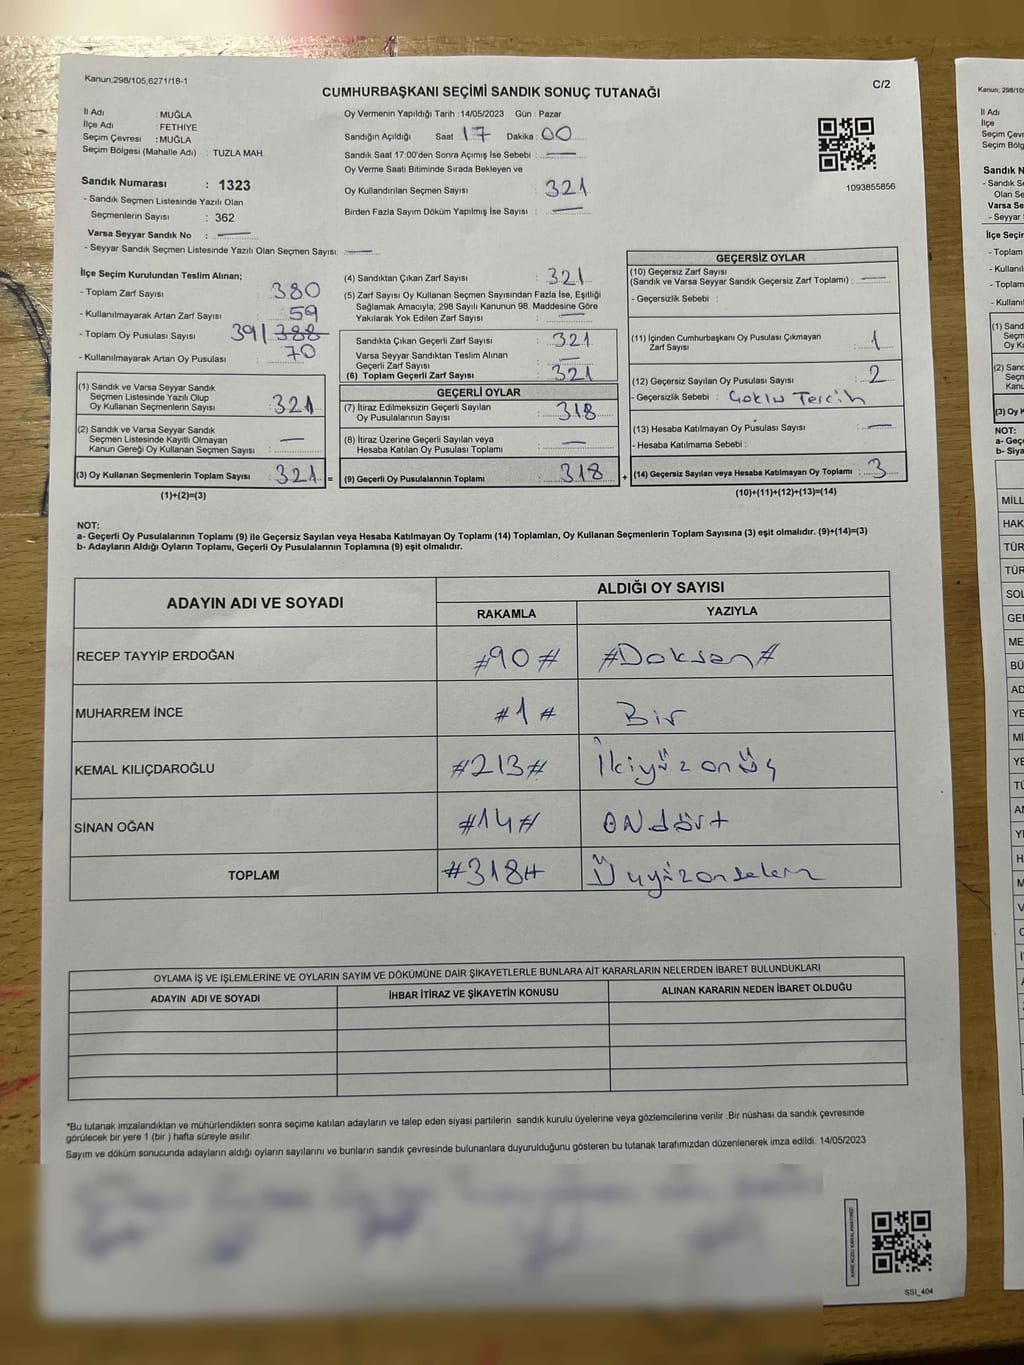 Kanun;298/105,6271/18-1
C/2
CUMHURBAŞKANI SEÇİMİ SANDIK SONUÇ TUTANAĞI
İl Adı : MUĞLA
İlçe Adı : FETHİYE
Seçim Çevresi : MUĞLA
Seçim Bölgesi (Mahalle Adı) : TUZLA MAH.
Sandık Numarası : 1323
- Sandık Seçmen Listesinde Yazılı Olan
Seçmenlerin Sayısı : 362
Varsa Seyyar Sandık No :
- Seyyar Sandık Seçmen Listesinde Yazılı Olan Seçmen Sayısı:
Oy Vermenin Yapıldığı Tarih :14/05/2023 Gün : Pazar
Sandığın Açıldığı Saat : 17 Dakika : 00
Sandık Saat 17:00'den Sonra Açımış İse Sebebi :
Oy Verme Saati Bitiminde Sırada Bekleyen ve
Oy Kullandırılan Seçmen Sayısı 321
Birden Fazla Sayım Döküm Yapılmış İse Sayısı :
1093855856
İlçe Seçim Kurulundan Teslim Alınan;
- Toplam Zarf Sayısı : 380
- Kullanılmayarak Artan Zarf Sayısı : 59
- Toplam Oy Pusulası Sayısı 391 388
- Kullanılmayarak Artan Oy Pusulası : 70
(1) Sandık ve Varsa Seyyar Sandık
Seçmen Listesinde Yazılı Olup
Oy Kullanan Seçmenlerin Sayısı : 321
(2) Sandık ve Varsa Seyyar Sandık
Seçmen Listesinde Kayıtlı Olmayan
Kanun Gereği Oy Kullanan Seçmen Sayısı :
(3) Oy Kullanan Seçmenlerin Toplam Sayısı : 321 =
(1)+(2)=(3)
(4) Sandıktan Çıkan Zarf Sayısı : 321
(5) Zarf Sayısı Oy Kullanan Seçmen Sayısından Fazla İse, Eşitliği
Sağlamak Amacıyla; 298 Sayılı Kanunun 98. Maddesine Göre
Yakılarak Yok Edilen Zarf Sayısı :
Sandıkta Çıkan Geçerli Zarf Sayısı : 321
Varsa Seyyar Sandıktan Teslim Alınan
Geçerli Zarf Sayısı :
(6) Toplam Geçerli Zarf Sayısı : 321
GEÇERLİ OYLAR
(7) İtiraz Edilmeksizin Geçerli Sayılan
Oy Pusulalarının Sayısı : 318
(8) İtiraz Üzerine Geçerli Sayılan veya
Hesaba Katılan Oy Pusulası Toplamı :
(9) Geçerli Oy Pusulalarının Toplamı : 318 +
GEÇERSİZ OYLAR
(10) Geçersiz Zarf Sayısı
(Sandık ve Varsa Seyyar Sandık Geçersiz Zarf Toplamı) :
- Geçersizlik Sebebi :
(11) İçinden Cumhurbaşkanı Oy Pusulası Çıkmayan
Zarf Sayısı : 1
(12) Geçersiz Sayılan Oy Pusulası Sayısı : 2
- Geçersizlik Sebebi : Çoklu Tercih
(13) Hesaba Katılmayan Oy Pusulası Sayısı :
- Hesaba Katılmama Sebebi :
(14) Geçersiz Sayılan veya Hesaba Katılmayan Oy Toplamı : 3
(10)+(11)+(12)+(13)=(14)
NOT:
a- Geçerli Oy Pusulalarının Toplamı (9) ile Geçersiz Sayılan veya Hesaba Katılmayan Oy Toplamı (14) Toplamları, Oy Kullanan Seçmenlerin Toplam Sayısına (3) eşit olmalıdır. (9)+(14)=(3)
b- Adayların Aldığı Oyların Toplamı, Geçerli Oy Pusulalarının Toplamına (9) eşit olmalıdır.
ADAYIN ADI VE SOYADI
ALDIĞI OY SAYISI
RAKAMLA YAZIYLA
RECEP TAYYİP ERDOĞAN #90# #Doksan#
MUHARREM İNCE #1# Bir
KEMAL KILIÇDAROĞLU #213# İkiyüzonüç
SİNAN OĞAN #14# ONdört
TOPLAM #318#
OYLAMA İŞ VE İŞLEMLERİNE VE OYLARIN SAYIM VE DÖKÜMÜNE DAİR ŞİKAYETLERLE BUNLARA AİT KARARLARIN NELERDEN İBARET BULUNDUKLARI
ADAYIN ADI VE SOYADI İHBAR İTİRAZ VE ŞİKAYETİN KONUSU ALINAN KARARIN NEDEN İBARET OLDUĞU
*Bu tutanak imzalandıktan ve mühürlendikten sonra seçime katılan adayların ve talep eden siyasi partilerin sandık kurulu üyelerine veya gözlemcilerine verilir .Bir nüshası da sandık çevresinde
görülecek bir yere 1 (bir ) hafta süreyle asılır.
Sayım ve döküm sonucunda adayların aldığı oyların sayılarını ve bunların sandık çevresinde bulunanlara duyurulduğunu gösteren bu tutanak tarafımızdan düzenlenerek imza edildi. 14/05/2023
SSI_404